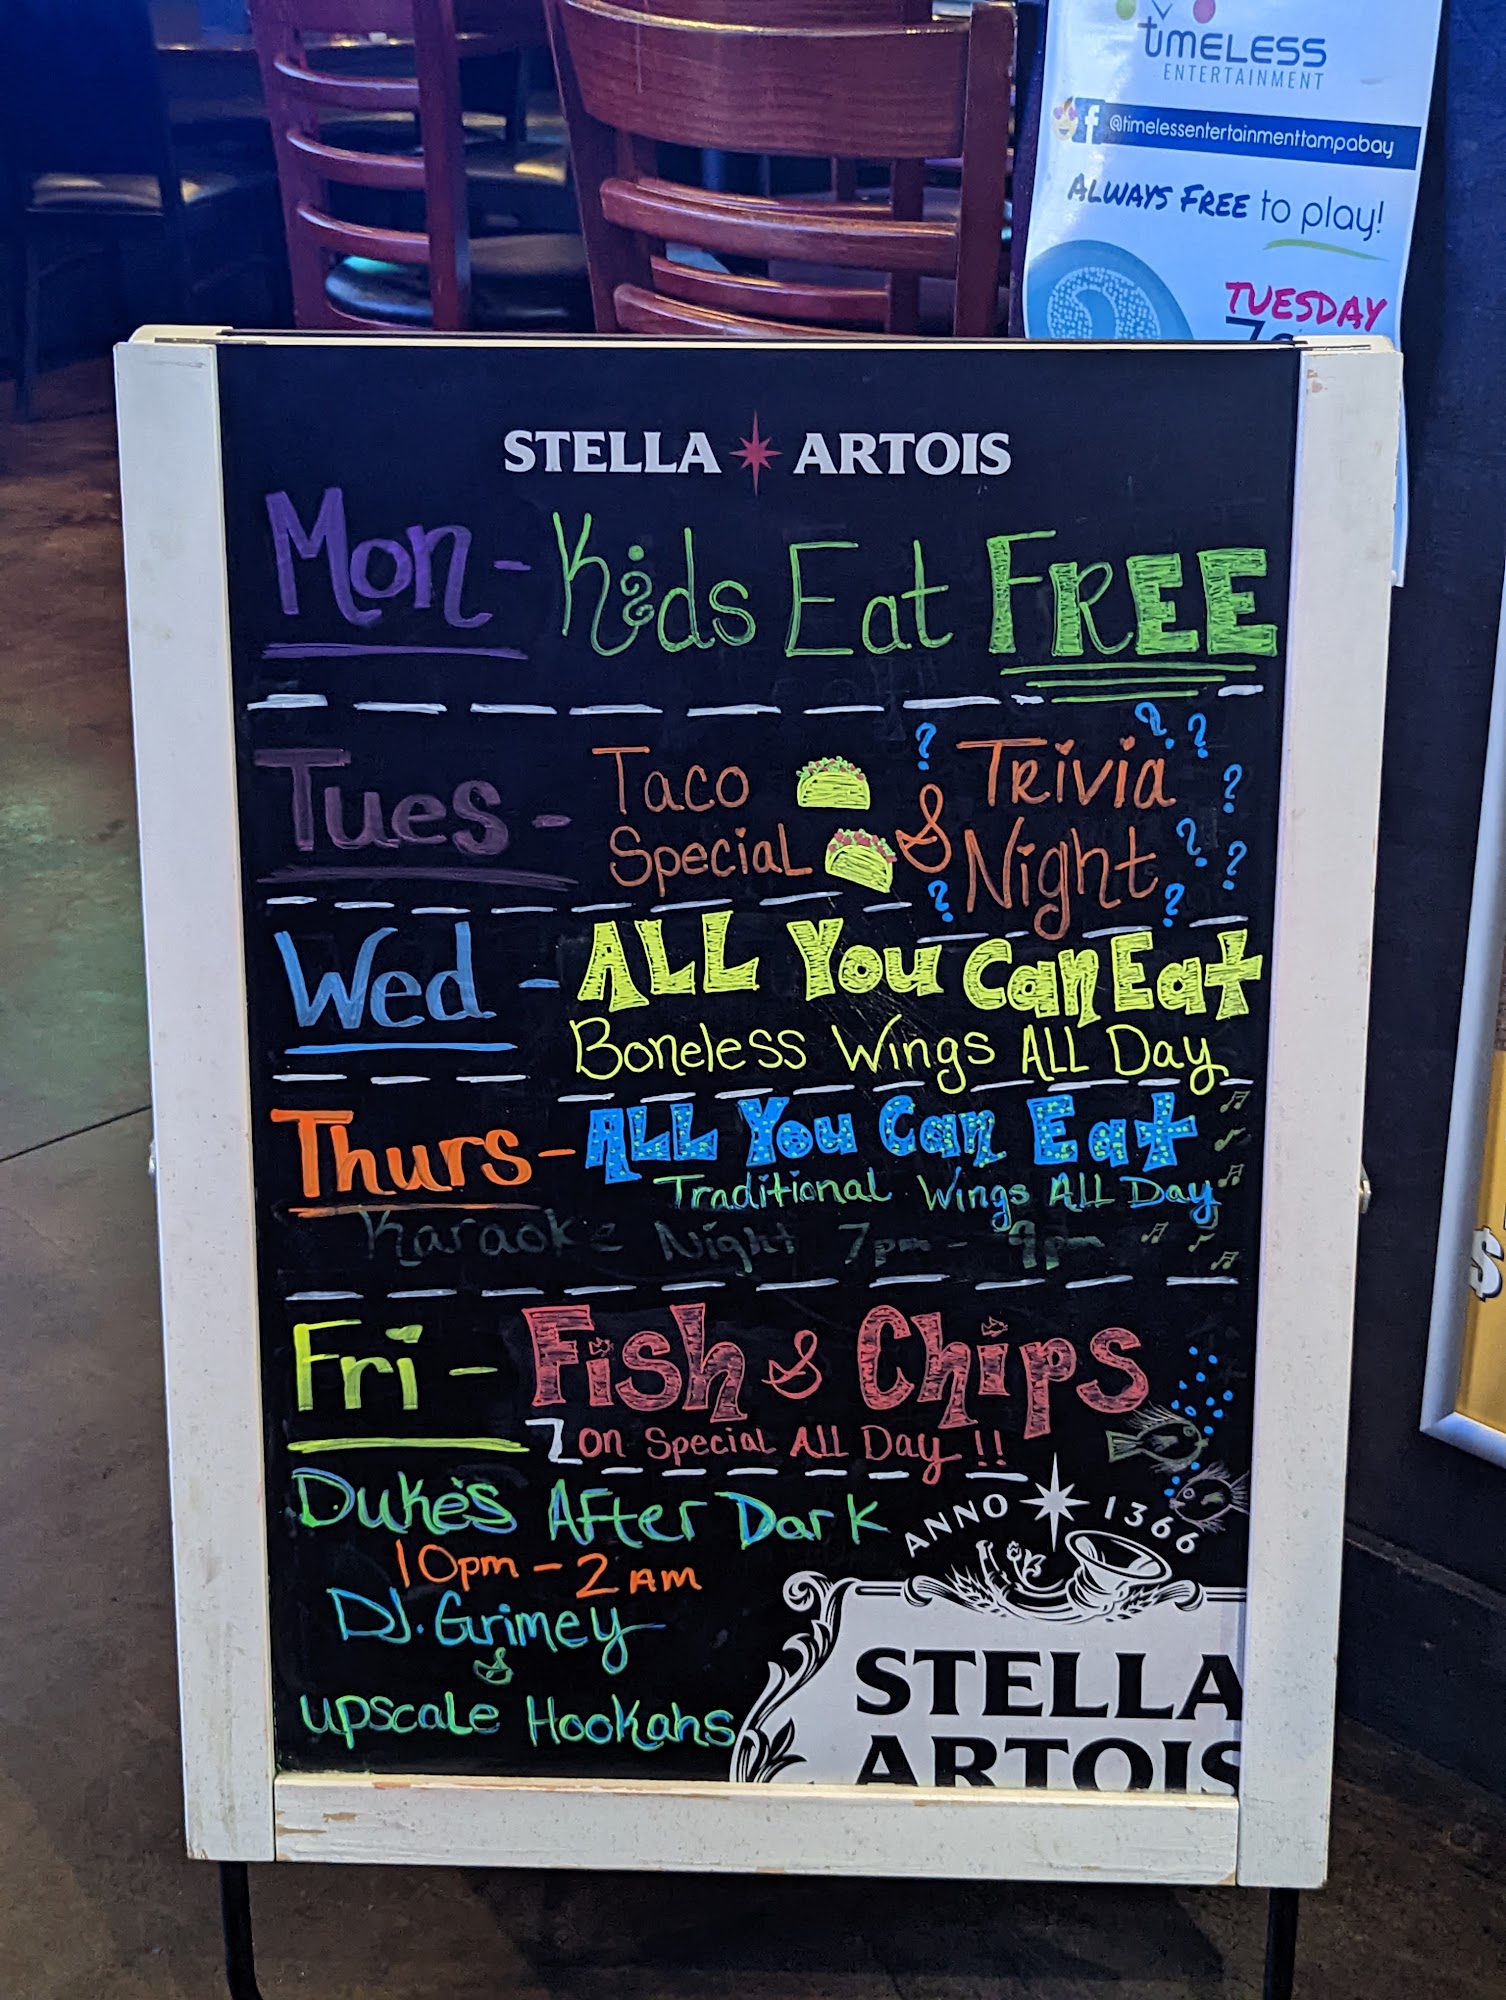 timeless
ENTERTAINMENT
@timelessentertainmenttampabay
ALWAYS FREE to play!
TUESDAY
STELLA ARTOIS
Mon - Kids Eat FREE
Tues - Taco Special & Trivia Night
Wed - ALL You Can Eat
Boneless Wings ALL Day
Thurs - ALL You Can Eat
Traditional Wings ALL Day
Karaoke Night 7pm - 9pm
Fri - Fish & Chips
on Special ALL Day!!
Duke's After Dark
10pm - 2AM
DJ. Grimey
&
upscale Hookahs
ANNO 1366
STELLA
ARTOIS
$